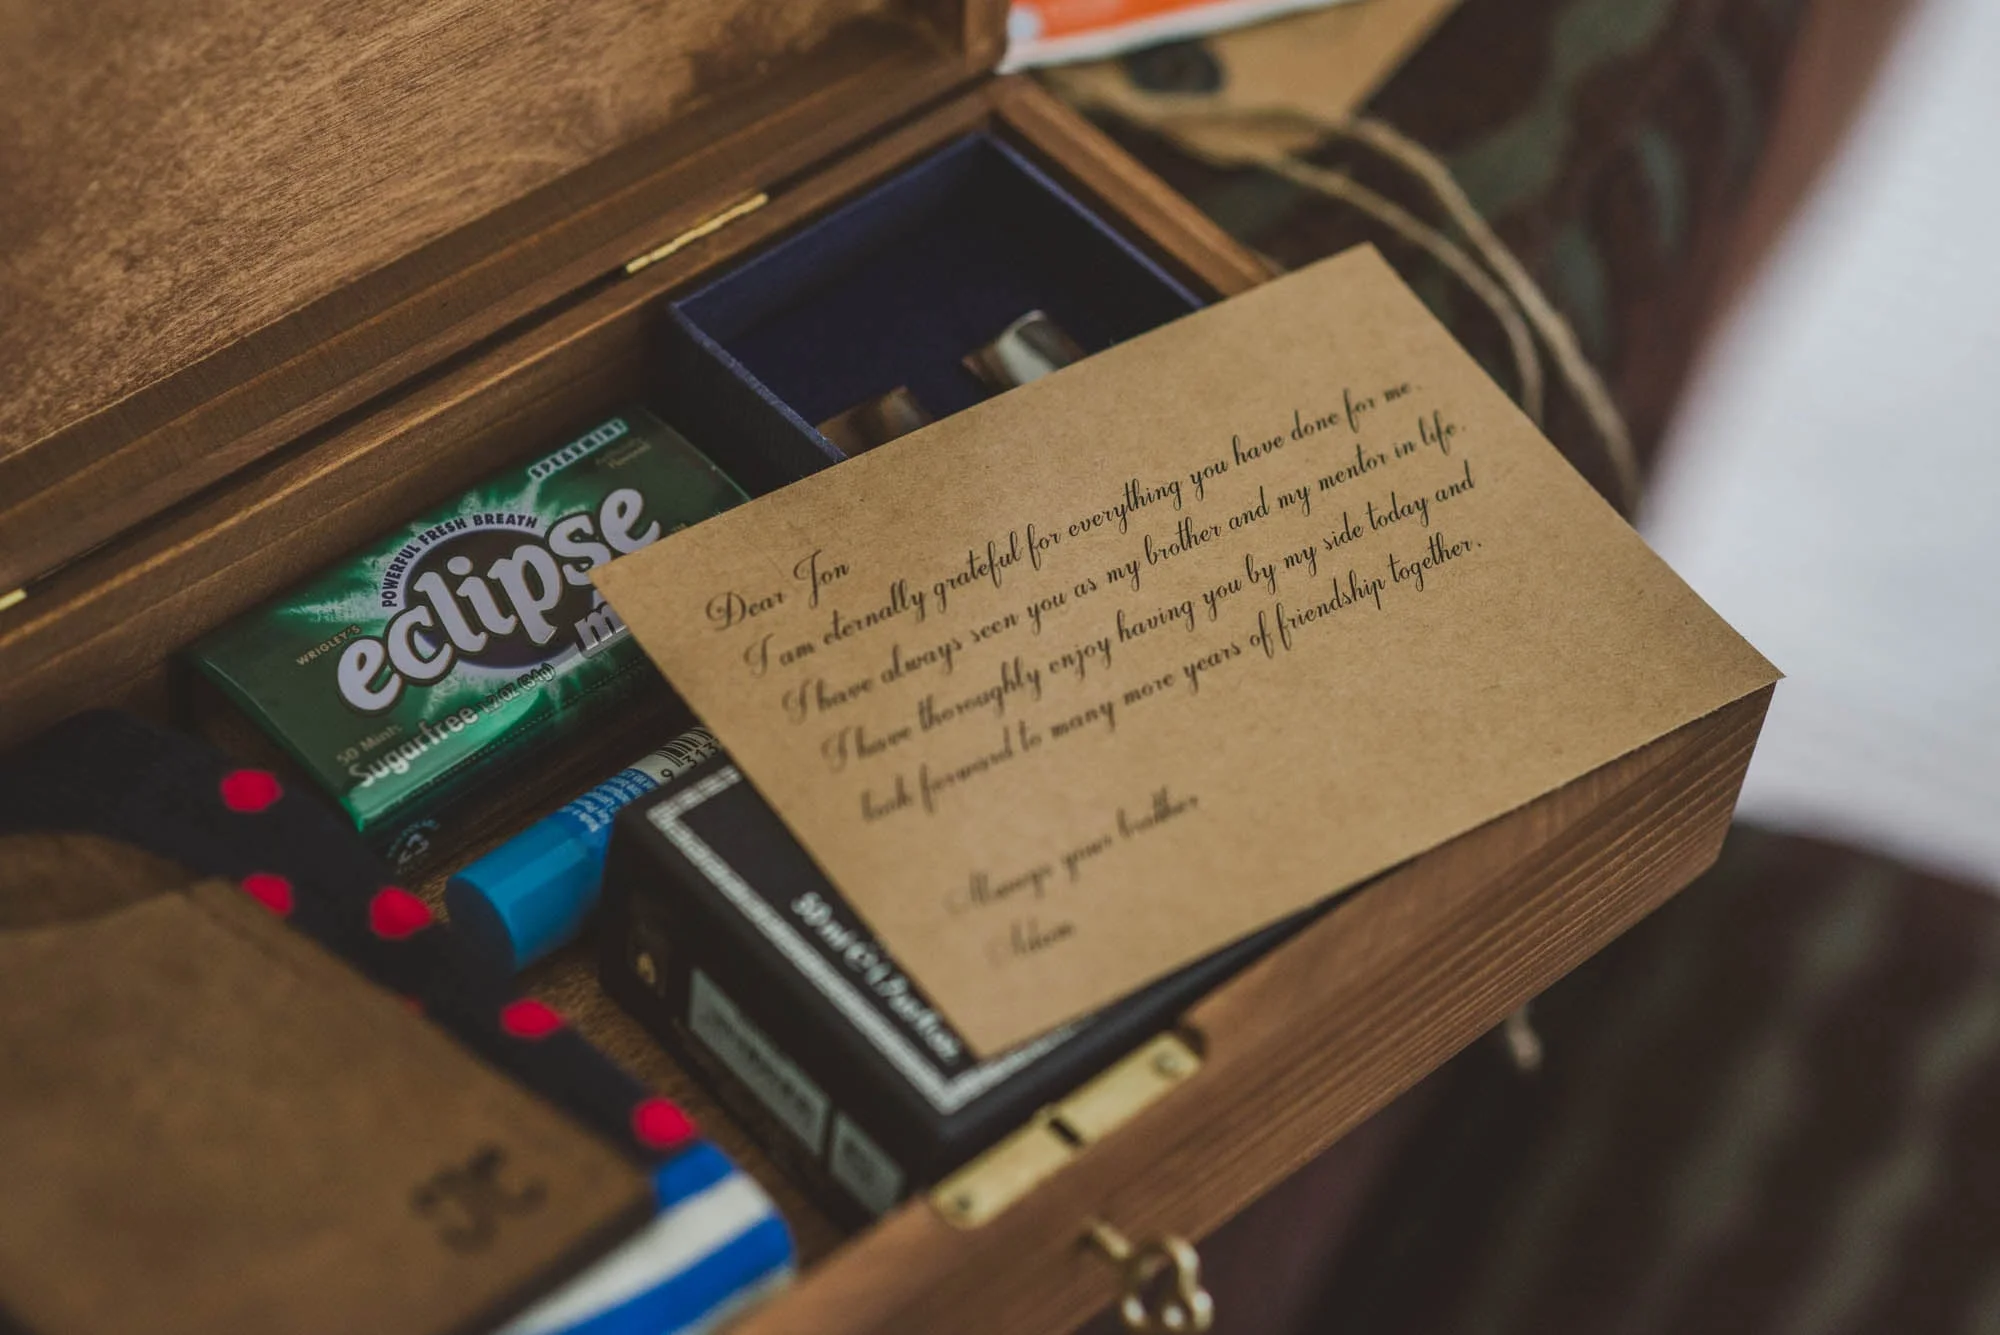 SPEARMINT
POWERFUL FRESH BREATH
WRIGLEY'S
eclipse
50 Mints
Sugarfree 1.2 OZ (34g)
9 313
50 ml
Dear Jon
I am eternally grateful for everything you have done for me.
I have always seen you as my brother and my mentor in life.
I have thoroughly enjoy having you by my side today and
look forward to many more years of friendship together.
Always your brother